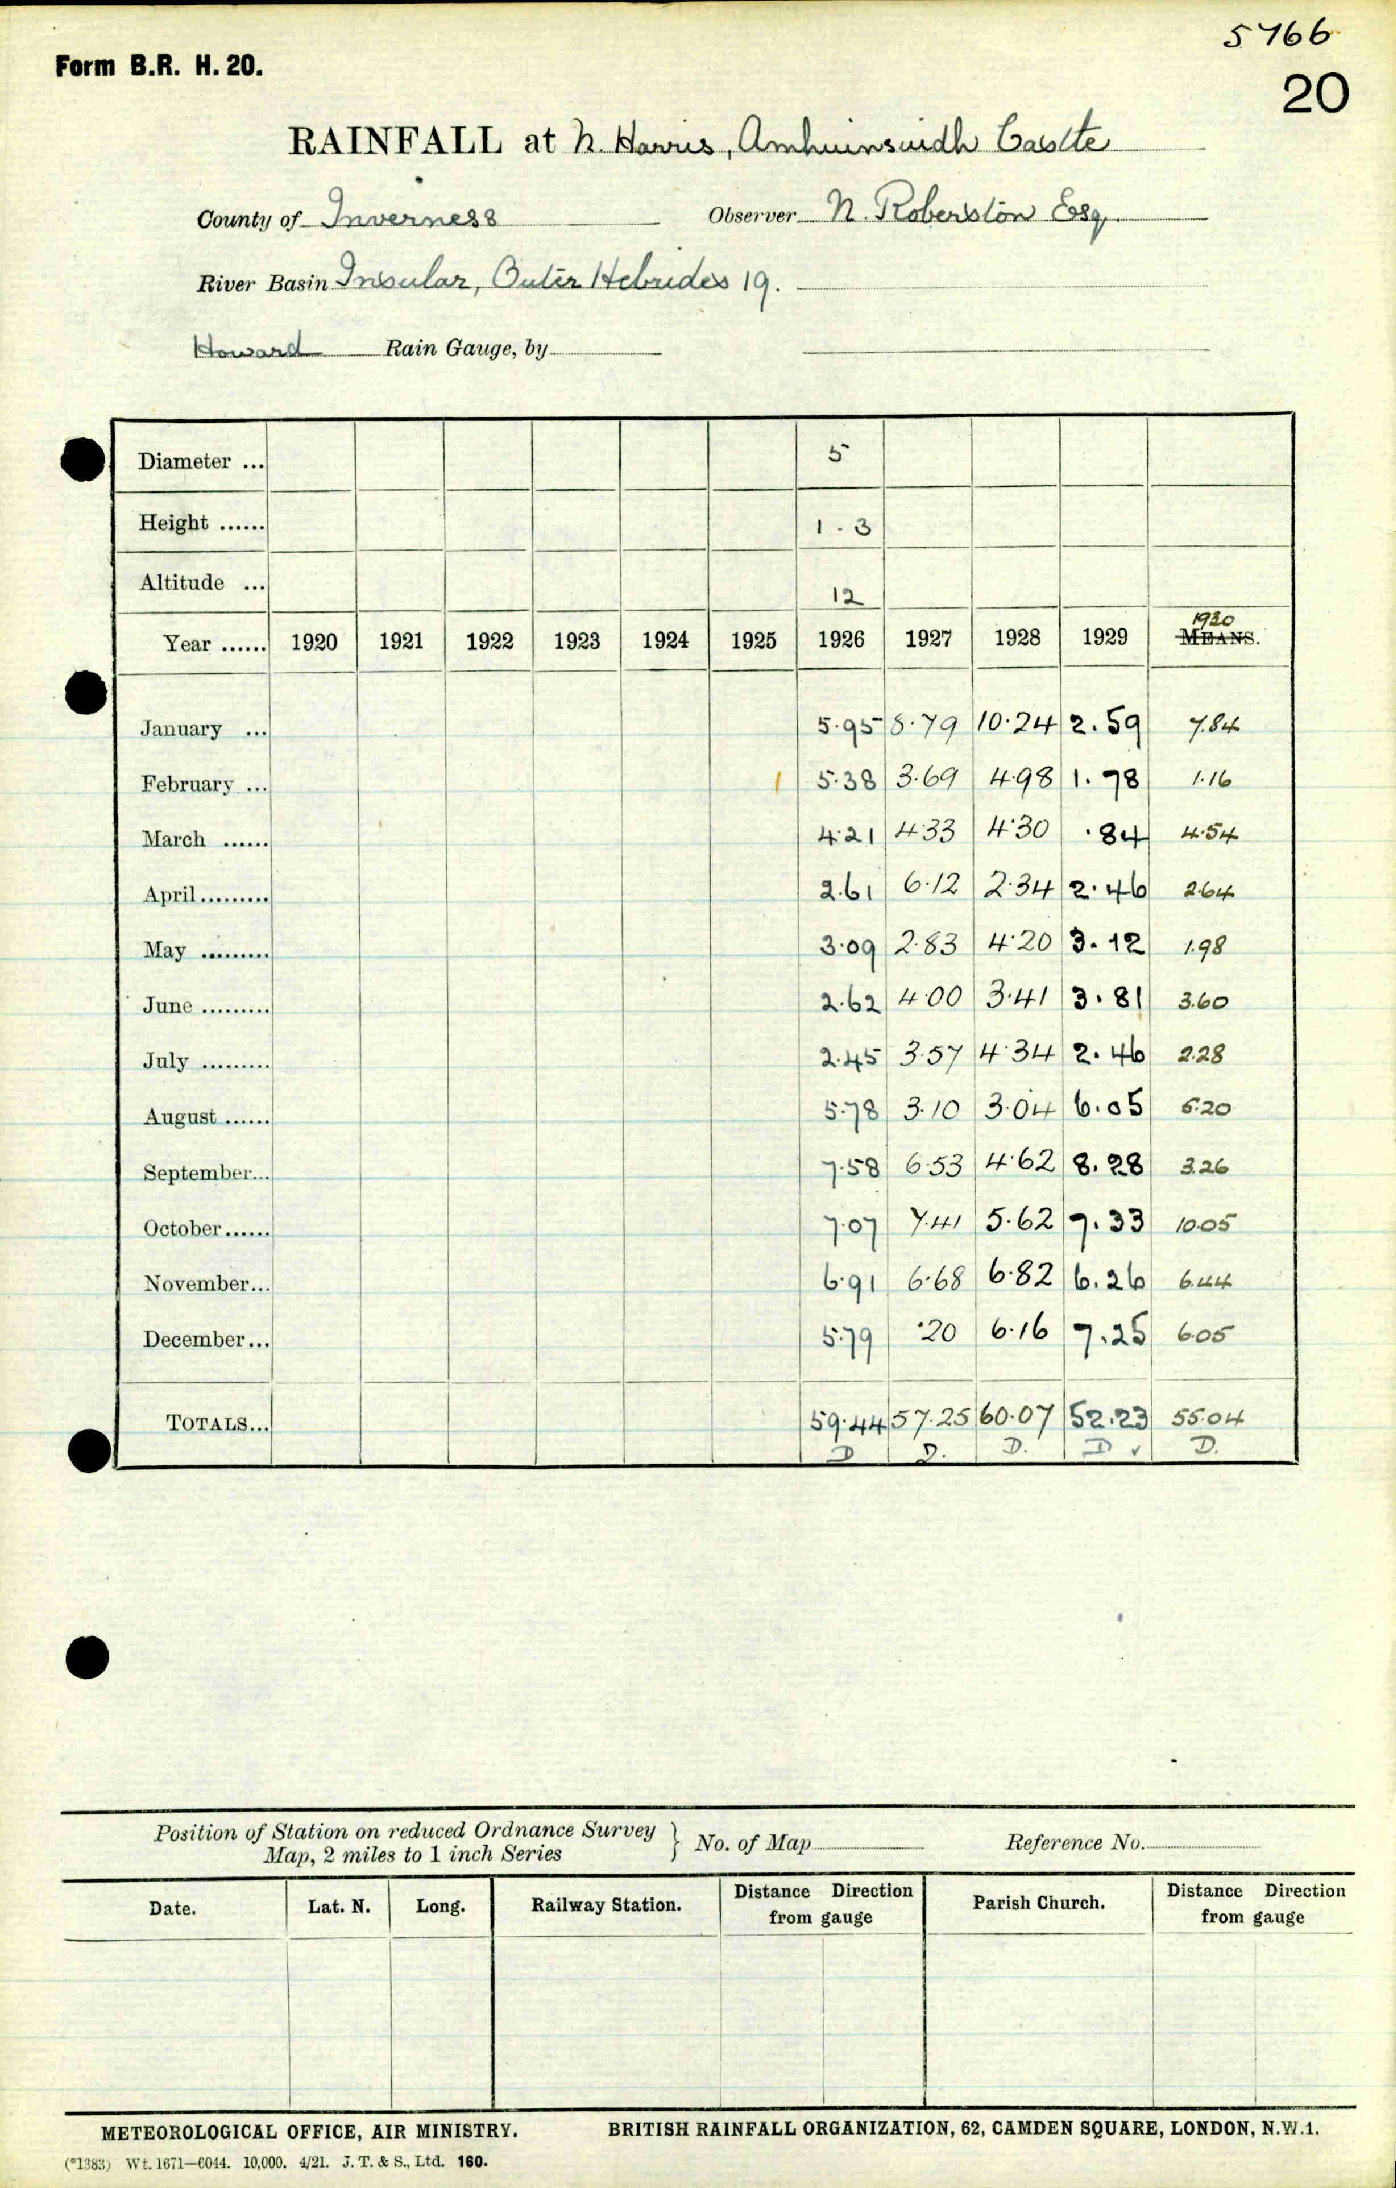 5766
Form B.R. H. 20.
20
RAINFALL at N. Harris, Amhuinsuidh Castle
County of Inverness Observer N. Roberston Esq.
River Basin Insular, Outer Hebrides 19.
Howard Rain Gauge, by
Diameter ... 5
Height ...... 1 - 3
Altitude ... 12
1930
Year ...... 1920 1921 1922 1923 1924 1925 1926 1927 1928 1929 MEANS.
January ... 5.95 8.79 10.24 2.59 7.84
February ... 5.38 3.69 4.98 1.78 1.16
March ...... 4.21 4.33 4.30 .84 4.54
April......... 2.61 6.12 2.34 2.46 2.64
May ......... 3.09 2.83 4.20 3.12 1.98
June ......... 2.62 4.00 3.41 3.81 3.60
July ......... 2.45 3.57 4.34 2.46 2.28
August ...... 5.78 3.10 3.04 6.05 5.20
September... 7.58 6.53 4.62 8.28 3.26
October...... 7.07 7.41 5.62 7.33 10.05
November... 6.91 6.68 6.82 6.26 6.44
December... 5.79 .20 6.16 7.25 6.05
TOTALS... 59.44 57.25 60.07 52.23 55.04
D D. D. D ✓ D.
Position of Station on reduced Ordnance Survey
Map, 2 miles to 1 inch Series } No. of Map Reference No.
Date. Lat. N. Long. Railway Station. Distance Direction from gauge Parish Church. Distance Direction from gauge
METEOROLOGICAL OFFICE, AIR MINISTRY. BRITISH RAINFALL ORGANIZATION, 62, CAMDEN SQUARE, LONDON, N.W.1.
(*1383) Wt. 1671—6044. 10,000. 4/21. J. T. & S., Ltd. 160.